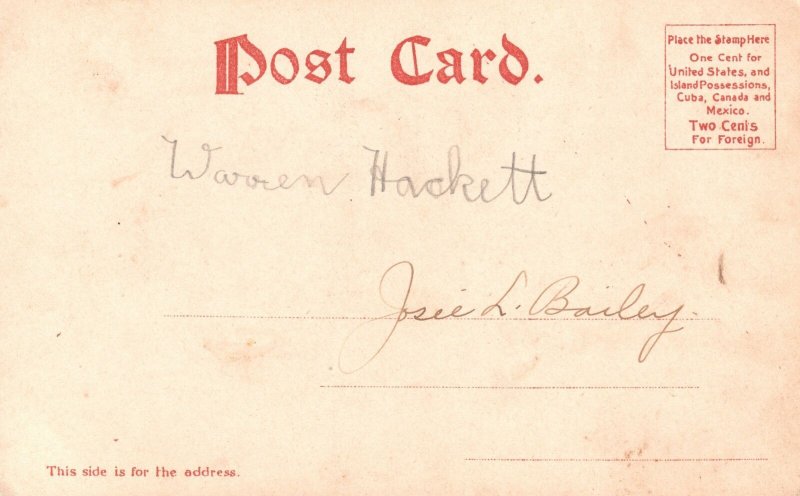 Post Card.
Place the Stamp Here
One Cent for
United States, and
Island Possessions,
Cuba, Canada and
Mexico.
Two Cents
For Foreign.
Warren Hackett
Josie L. Bailey.
This side is for the address.